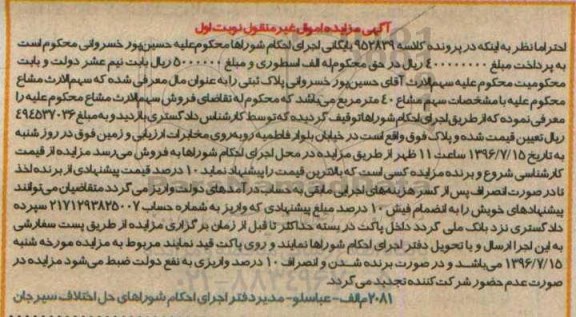 آگهی مزایده اموال غیر منقول نوبت اول
احتراما نظر به اینکه در پرونده کلاسه ۹۵۲۸۳۹ بایگانی اجرای احکام شوراها محکوم‌علیه حسین‌پور خسروانی محکوم است
به پرداخت مبلغ ۴۰۰۰۰۰۰۰۰ ریال در حق محکوم‌له الف اسطوری و مبلغ ۵۰۰۰۰۰۰ ریال بابت نیم عشر دولت و بابت
محکومیت محکوم علیه سهم‌الارث آقای حسین‌پور خسروانی پلاک ثبتی را به عنوان مال معرفی شده که سهم‌الارث مشاع
محکوم علیه با مشخصات سهم مشاع ۴۰ متر مربع می‌باشد که محکوم‌له تقاضای فروش سهم‌الارث مشاع محکوم علیه را
معرفی نموده که از طریق اجرای احکام شوراها توقیف گردیده که توسط کارشناس دادگستری بازدید و به مبلغ ۴۹۴۵۲۷۰۲۶
ریال تعیین قیمت شده و پلاک فوق واقع است در خیابان بلوار فاطمیه روبه‌روی مخابرات ارزیابی و زمین فوق در روز شنبه
به تاریخ ۱۳۹۶/۷/۱۵ ساعت ۱۱ ظهر از طریق مزایده در محل اجرای احکام شوراها به فروش می‌رسد مزایده از قیمت
کارشناسی شروع و برنده مزایده کسی است که بالاترین قیمت را پیشنهاد نماید ۱۰ درصد قیمت پیشنهادی از برنده اخذ
تا در صورت انصراف پس از کسر هزینه‌های اجرایی مابقی به حساب درآمدهای دولت واریز می‌گردد متقاضیان می‌توانند
پیشنهادهای خویش را به انضمام فیش ۱۰ درصد مبلغ پیشنهادی که واریز به شماره حساب ۲۱۷۱۲۹۳۸۲۵۰۰۷ سپرده
دادگستری نزد بانک ملی گردد داخل پاکت در بسته حداکثر تا قبل از زمان برگزاری مزایده از طریق پست سفارشی
به این اجرا ارسال و یا تحویل دفتر اجرای احکام شوراها نمایند و روی پاکت قید نمایند مربوط به مزایده مورخه شنبه
۱۳۹۶/۷/۱۵ می‌باشد و در صورت برنده شدن و انصراف ۱۰ درصد واریزی به نفع دولت ضبط می‌شود مزایده در
صورت عدم حضور شرکت کننده تجدید می‌گردد.
۲۰۸۱ م‌الف - عباسلو - مدیر دفتر اجرای احکام شوراهای حل اختلاف سیرجان